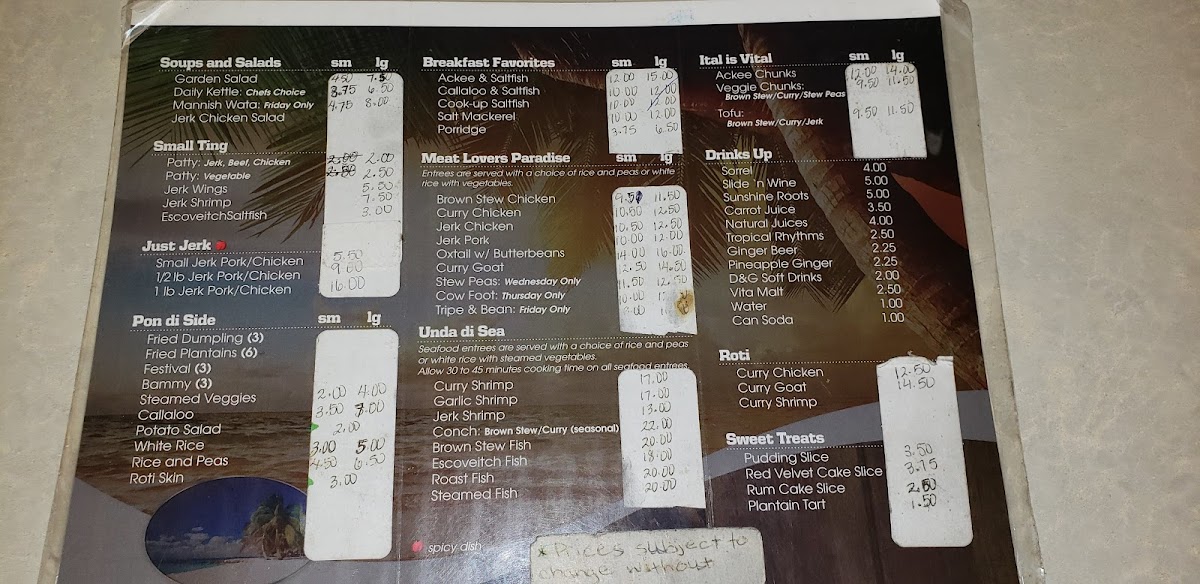 Soups and Salads sm lg
Garden Salad 4.50 7.50
Daily Kettle: Chefs Choice 3.75 6.50
Mannish Wata: Friday Only 4.75 8.00
Jerk Chicken Salad
Small Ting
Patty: Jerk, Beef, Chicken 2.00 2.00
Patty: Vegetable 2.50 2.50
Jerk Wings 5.50
Jerk Shrimp 7.50
EscoveitchSaltfish 3.00
Just Jerk
Small Jerk Pork/Chicken 5.50
1/2 lb Jerk Pork/Chicken 9.00
1 lb Jerk Pork/Chicken 16.00
Pon di Side sm lg
Fried Dumpling (3)
Fried Plantains (6)
Festival (3)
Bammy (3)
Steamed Veggies 2.00 4.00
Callaloo 3.50 7.00
Potato Salad 2.00
White Rice 3.00 5.00
Rice and Peas 4.50 6.50
Roti Skin 3.00
Breakfast Favorites sm lg
Ackee & Saltfish 12.00 15.00
Callaloo & Saltfish 10.00 12.00
Cook-up Saltfish 10.00 12.00
Salt Mackerel 10.00 12.00
Porridge 3.75 6.50
Meat Lovers Paradise sm lg
Entrees are served with a choice of rice and peas or white
rice with vegetables.
Brown Stew Chicken 9.50 11.50
Curry Chicken 10.50 12.50
Jerk Chicken 10.50 12.50
Jerk Pork 10.00 12.00
Oxtail w/ Butterbeans 14.00 16.00
Curry Goat 12.50 14.50
Stew Peas: Wednesday Only 11.50
Cow Foot: Thursday Only 10.00
Tripe & Bean: Friday Only
Unda di Sea
Seafood entrees are served with a choice of rice and peas
or white rice with steamed vegetables.
Allow 30 to 45 minutes cooking time on all seafood entrees.
Curry Shrimp 17.00
Garlic Shrimp 17.00
Jerk Shrimp 13.00
Conch: Brown Stew/Curry (seasonal) 22.00
Brown Stew Fish 20.00
Escoveitch Fish 18.00
Roast Fish 20.00
Steamed Fish 20.00
spicy dish
Ital is Vital sm lg
Ackee Chunks 12.00 14.00
Veggie Chunks: 9.50 11.50
Brown Stew/Curry/Stew Peas
Tofu: 9.50 11.50
Brown Stew/Curry/Jerk
Drinks Up
Sorrel 4.00
Slide 'n Wine 5.00
Sunshine Roots 5.00
Carrot Juice 3.50
Natural Juices 4.00
Tropical Rhythms 2.50
Ginger Beer 2.25
Pineapple Ginger 2.25
D&G Soft Drinks 2.00
Vita Malt 2.50
Water 1.00
Can Soda 1.00
Roti
Curry Chicken 12.50
Curry Goat 14.50
Curry Shrimp
Sweet Treats
Pudding Slice 3.50
Red Velvet Cake Slice 3.75
Rum Cake Slice 2.50
Plantain Tart 1.50
* Prices subject to
change without